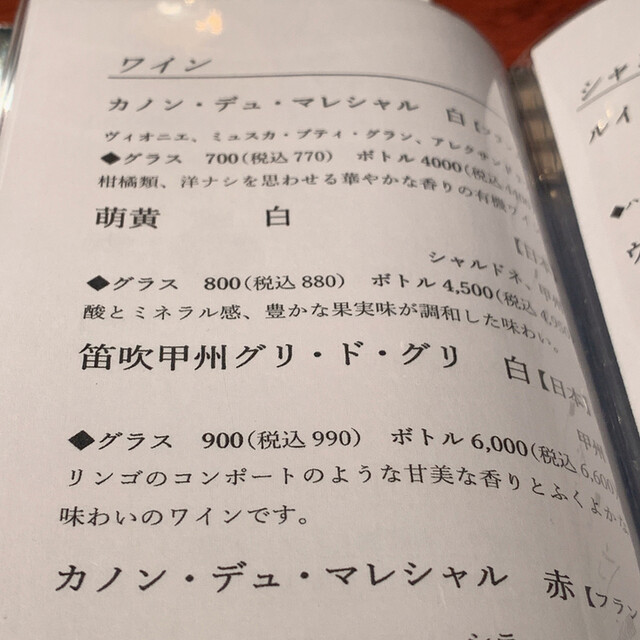 ワイン
カノン・デュ・マレシャル 白【フラン
ヴィオニエ、ミュスカ・プティ・グラン、アレクサンド
◆グラス 700(税込770) ボトル4000(税込44
柑橘類、洋ナシを思わせる華やかな香りの有機ワイ
萌黄 白
【日本
シャルドネ、甲州
◆グラス 800(税込880) ボトル4,500(税込4,95
酸とミネラル感、豊かな果実味が調和した味わい。
笛吹甲州グリ・ド・グリ 白【日本】
甲州
◆グラス 900(税込990) ボトル6,000(税込6,600)
リンゴのコンポートのような甘美な香りとふくよかな
味わいのワインです。
カノン・デュ・マレシャル 赤【フラン
シラ
シャン
ルイ